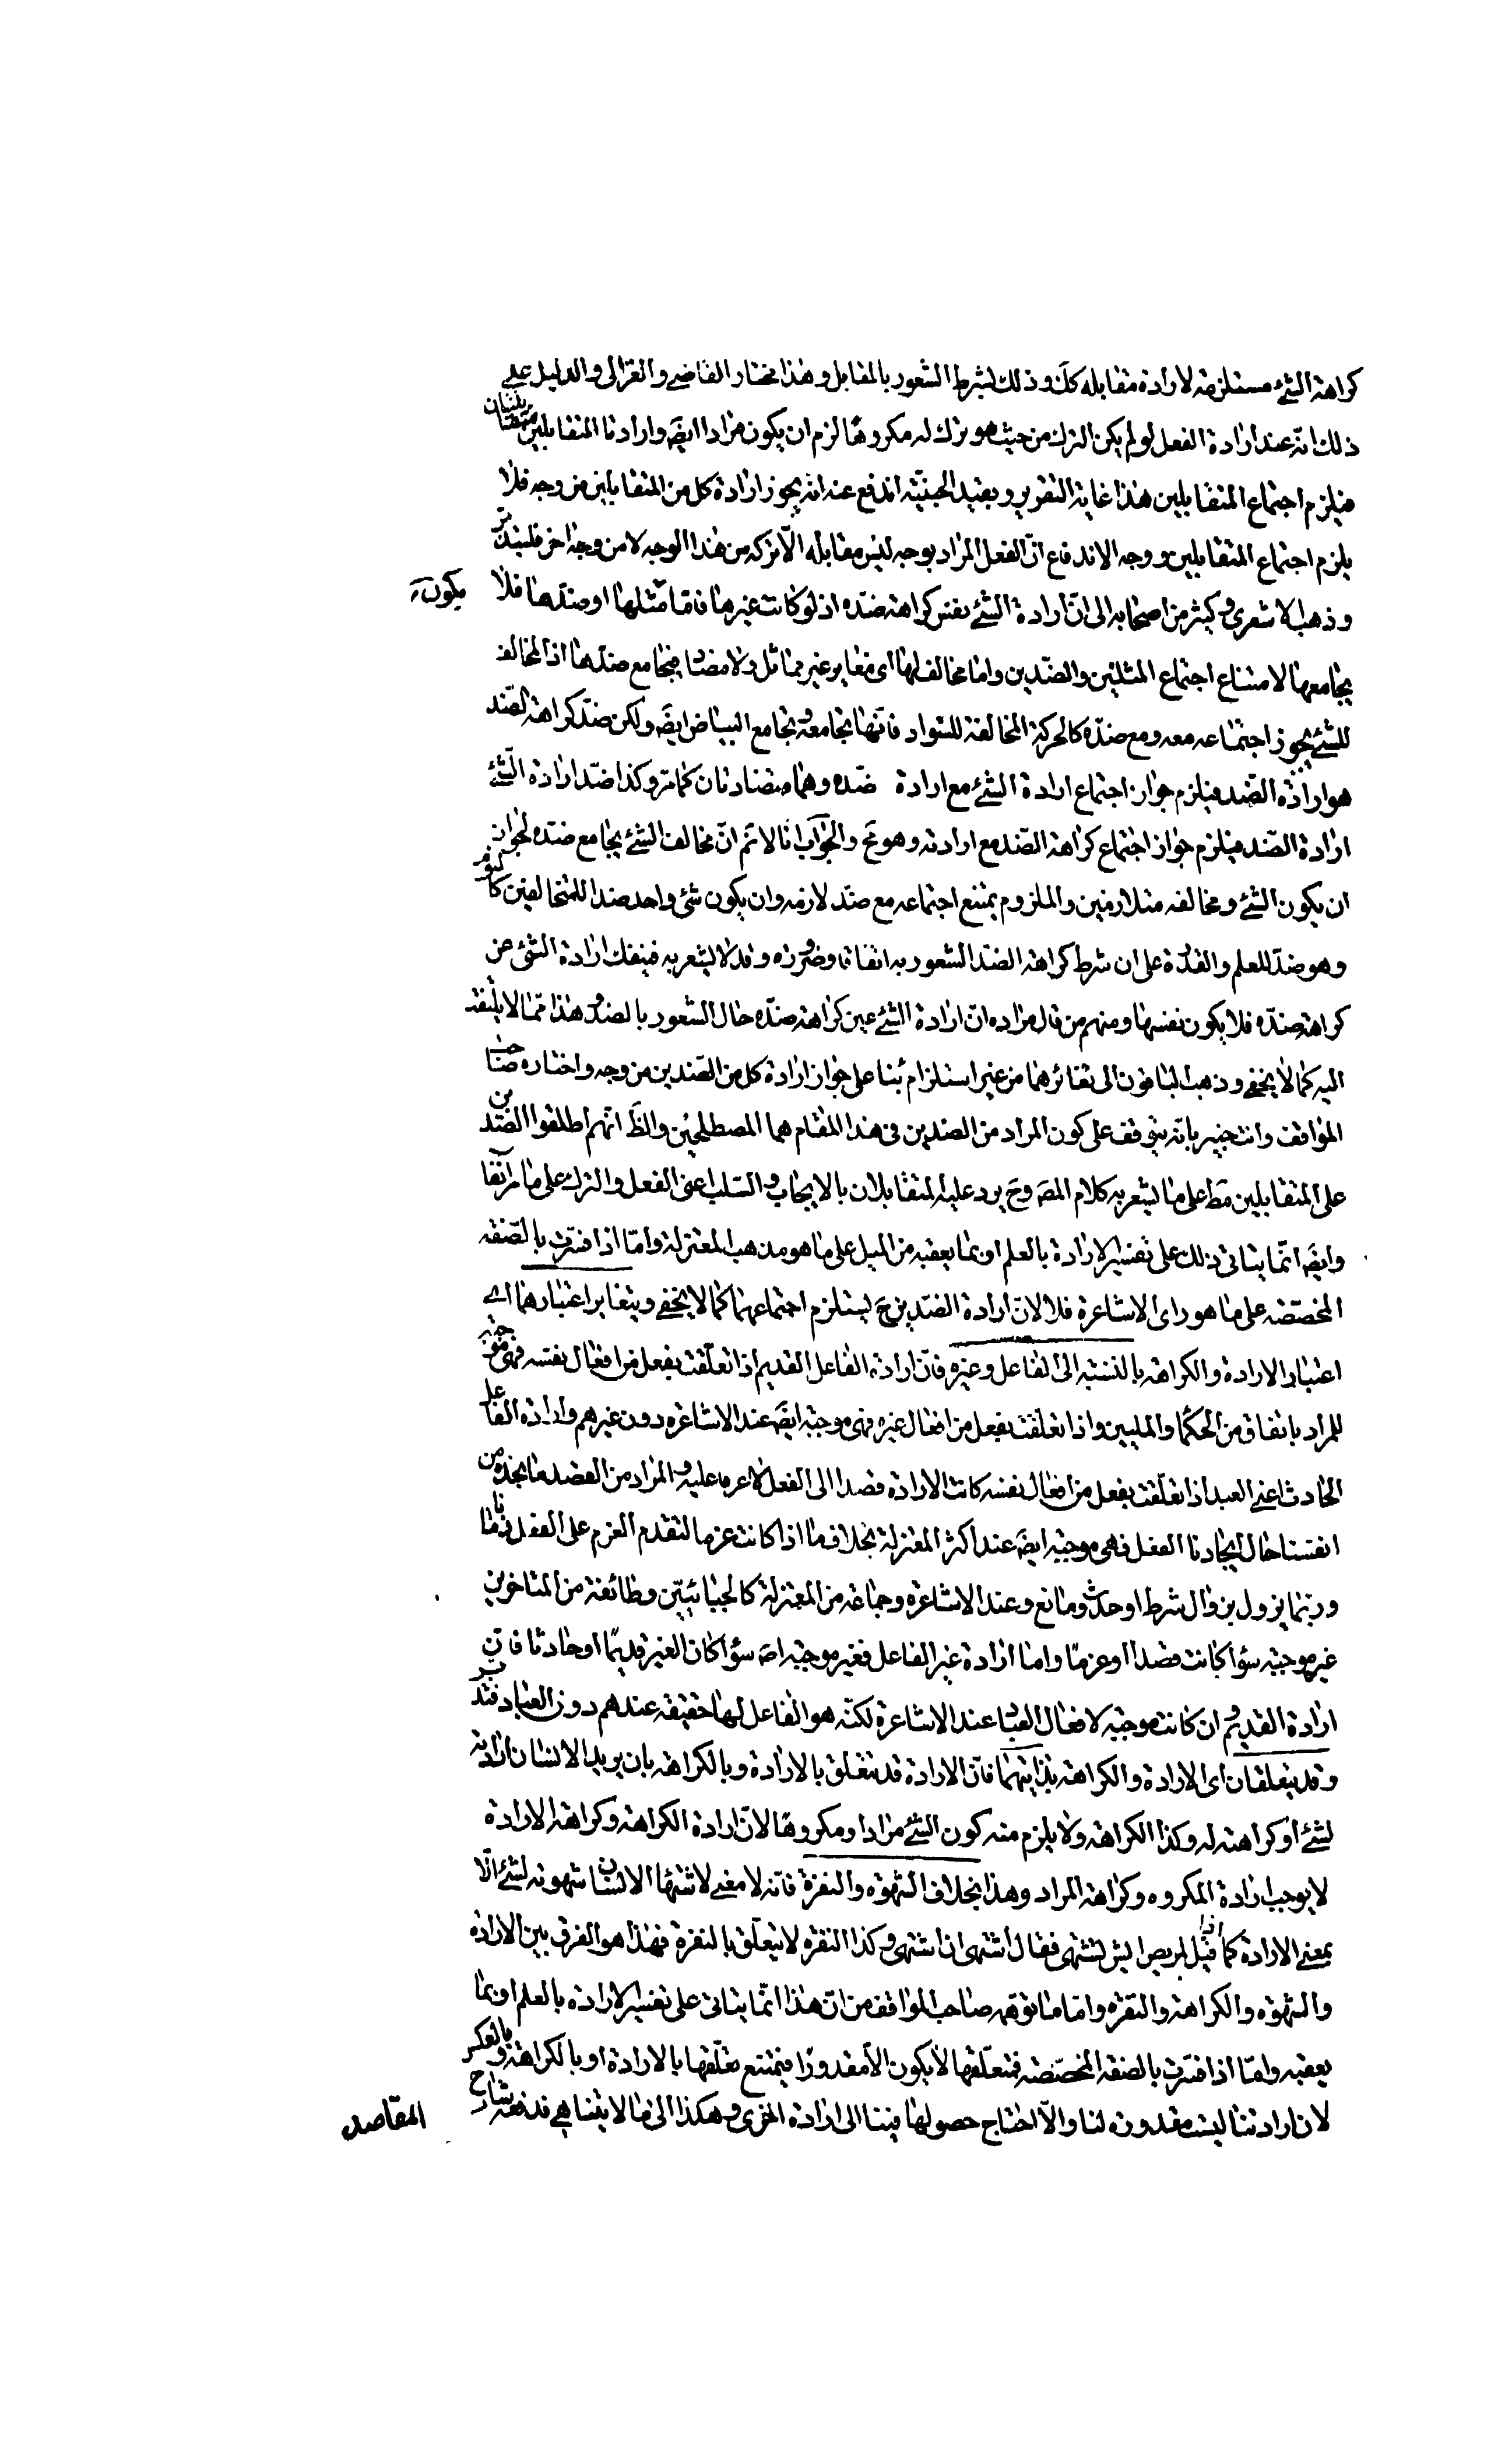 كراهة الشئ مستلزمة لارادة مقابله كك وذلك بشرط الشعور بالمقابل وهذا مختار القاضي والغزالي والدليل على
ذلك انه عند ارادة الفعل لو لم يكن الترك من حيث هو ترك له مكروها لزم ان يكون مرادا ايضَ وارادتا المتقابلين متقابلتان
فيلزم اجتماع المتقابلين هذا غاية التقرير وبقيد الحيثية اندفع عنه انه يجوز ارادة كل من المتقابلين من وجه فلا
يلزم اجتماع المتقابلين ووجه الاندفاع انّ الفعل المراد بوجه ليس مقابله الا تركه من هذا الوجه لا من وجه اخر فليتدبّر
وذهب الاشعري وكثير من اصحابه الى انّ ارادة الشئ نفس كراهة ضده اذ لو كانت غيرها فاما مثلها او ضدها فلا يكون
يجامعها لامتناع اجتماع المثلين والضدين واما مخالف لها اى مغاير غير مماثل ولا مضاد فيجامع ضدها اذ المخالف
للشئ يجوز اجتماعه معه ومع ضدّه كالحركة المخالفة للسواد فانّها تجامعه وتجامع البياض ايضَ ولكن ضدّ كراهة الضد
هو ارادة الضد فيلزم جواز اجتماع ارادة الشئ مع ارادة ضده وهما متضادتان كما مرّ وكذا ضد ارادة الشئ
ارادة الضد فيلزم جواز اجتماع كراهة الضد مع ارادته وهو مح والجواب انا لا نم انّ مخالف الشئ يجامع ضده لجواز
ان يكون الشئ ومخالفه متلازمين والملزوم يمتنع اجتماعه مع ضد لازمه وان يكون شئ واحد ضدا للمتخالفين كالنوم
وهو ضدّ للعلم والقدرة على ان شرط كراهة الضد الشعور به اتفاقا وضرورة وقد لا يشعر به فينفك ارادة الشئ عن
كراهة ضدّه فلا يكون نفسها ومنهم من قال مراده انّ ارادة الشئ عين كراهة ضدّه حال الشعور بالضد وهذا ممّا لا يلتفت
اليه كما لا يخفى وذهب الباقون الى تغائرهما من غير استلزام بناء على جواز ارادة كل من الضدين من وجه واختاره صاحب
المواقف وانت خبير بانّه يتوقف على كون المراد من الضدين في هذا المقام هما المصطلحين والظَ انهم اطلقوا الضدين
على المتقابلين مط على ما يشعر به كلام المصَ وح يرد عليه المتقابلان بالايجاب والسلب اعني الفعل والترك على ما مرّ آنفا
وايضَ انّما يتاتى ذلك على تفسير الارادة بالعلم او بما يعقبه من الميل على ما هو مذهب المعتزلة وامّا اذا فسّرت بالصفة
المخصّصة على ما هو راى الاشاعرة فلا لانّ ارادة الضدين ح يستلزم اجتماعهما كما لا يخفى ويتغاير اعتبارهما اى
اعتبار الارادة والكراهة بالنسبة الى الفاعل وغيره فانّ ارادة الفاعل القديم اذا تعلّقت بفعل من افعال نفسه فهى موجبة
للمراد باتفاق من الحكما والمليين واذا تعلّقت بفعل من افعال غيره فهى موجبة ايضَ عند الاشاعرة دون غيرهم وارادة الفاعل
الحادث اعني العبد اذا تعلّقت بفعل من افعال نفسه كانت الارادة قصدا الى الفعل لا عزما عليه والمراد من القصد ما نجده من
انفسنا حال ايجادنا الفعل فهى موجبة ايضَ عند اكثر المعتزلة بخلاف ما اذا كانت عزما لتقدم العزم على الفعل زمانا
وربّما يزول بزوال شرط او حدث ومانع وعند الاشاعرة وجماعة من المعتزلة كالجبائيّين وطائفة من المتاخرين
غير موجبة سواء كانت قصدا او عزمًا واما ارادة غير الفاعل فغير موجبة اصَ سواء كان الغير قديمًا او حادثا فان
ارادة القديم وان كانت موجبة لافعال العباد عند الاشاعرة لكنّه هو الفاعل لها حقيقة عندهم دون العباد فتدبر
وقد يتعلقان اى الارادة والكراهة بذاتيهما فانّ الارادة قد تتعلق بالارادة وبالكراهة بان يريد الانسان ارادته
لشئ او كراهته له وكذا الكراهة ولا يلزم منه كون الشئ مرادا ومكروها لانّ ارادة الكراهة وكراهة الارادة
لا يوجب ارادة المكروه وكراهة المراد وهذا بخلاف الشهوة والنفرة فانّه لا معنى لاشتهاء الانسان شهوته لشئ الّا
بمعنى الارادة كما اذا قيل لمريض ايش تشتهى فقال اشتهى ان اشتهى وكذا النفرة لا يتعلّق بالنفرة فهذا هو الفرق بين الارادة
والشهوة والكراهة والنفرة وامّا ما توهمه صاحب المواقف من انّ هذا انّما يتاتى على تفسير الارادة بالعلم او بما
يعقبه وامّا اذا فسّرت بالصفة المخصّصة فمتعلّقها لا يكون الا مقدورًا فيمتنع تعلّقها بالارادة او بالكراهة وبالعكس
لان ارادتنا ليست مقدورة لنا والّا احتاج حصولها فينا الى ارادة اخرى وهكذا الى ما لا يتناهى فدفعه شارح
المقاصد